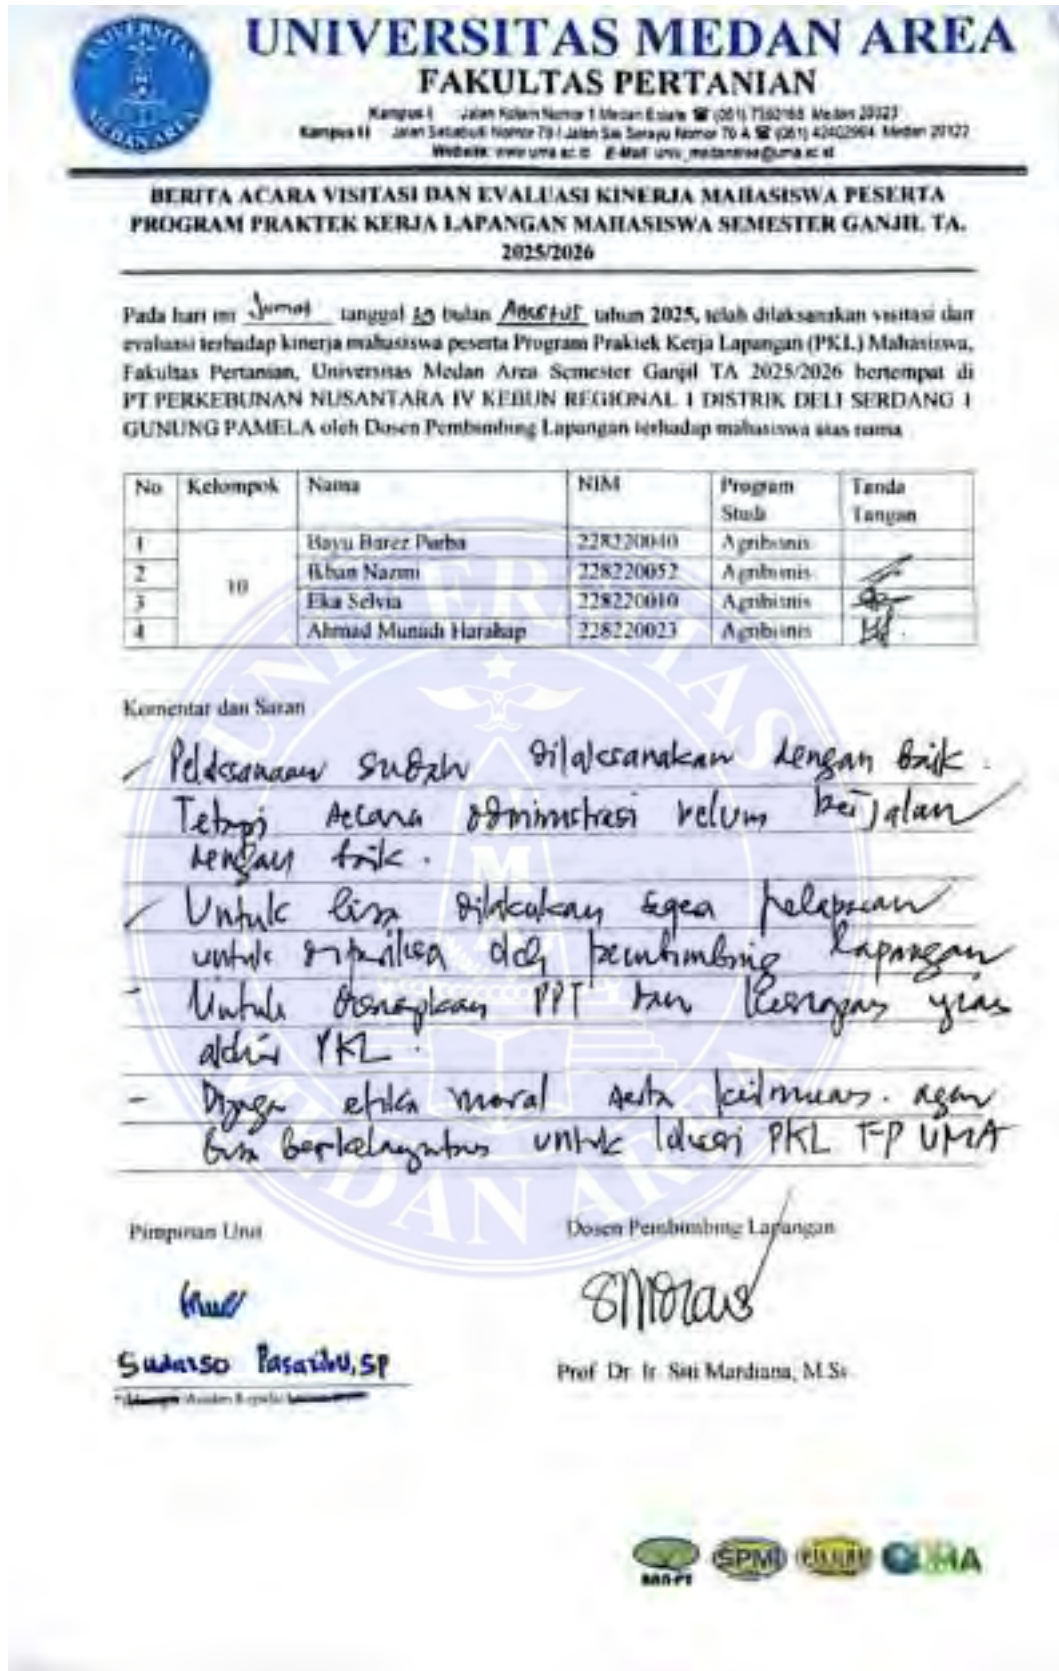 UNIVERSITAS MEDAN AREA
FAKULTAS PERTANIAN
Kampus I : Jalan Kolam Nomor 1 Medan Estate ☎ (061) Medan 20223
Kampus II : Jalan Setiabudi Nomor 79 / Jalan Sei Serayu Nomor 70 A ☎ (061) 42402994 Medan 20122
Website: www.uma.ac.id E-Mail: univ_medanarea@uma.ac.id
BERITA ACARA VISITASI DAN EVALUASI KINERJA MAHASISWA PESERTA
PROGRAM PRAKTEK KERJA LAPANGAN MAHASISWA SEMESTER GANJIL TA.
2025/2026
Pada hari ini Jumat tanggal bulan Agustus tahun 2025, telah dilaksanakan visitasi dan
evaluasi terhadap kinerja mahasiswa peserta Program Praktek Kerja Lapangan (PKL) Mahasiswa,
Fakultas Pertanian, Universitas Medan Area Semester Ganjil TA 2025/2026 bertempat di
PT PERKEBUNAN NUSANTARA IV KEBUN REGIONAL 1 DISTRIK DELI SERDANG 1
GUNUNG PAMELA oleh Dosen Pembimbing Lapangan terhadap mahasiswa atas nama
No Kelompok Nama NIM Program Studi Tanda Tangan
1 Bayu Barez Purba 228220040 Agribisnis
2 Nazmi 228220052 Agribisnis
10
3 Eka Selvia 228220010 Agribisnis
4 Ahmad Munadi Harahap 228220023 Agribisnis
Komentar dan Saran
Pelaksanaan sudah dilaksanakan dengan baik.
Tetapi secara administrasi belum berjalan
dengan baik.
Untuk bisa dilakukan segera pelaporan
untuk diperiksa oleh pembimbing lapangan
- Untuk disiapkan PPT dan akhir PKL.
- Dijaga etika moral serta keilmuan. agar
bisa untuk lokasi PKL FP UMA
Pimpinan Unit
Dosen Pembimbing Lapangan
Sudarso Pasaribu, SP
Prof. Dr. Ir. Siti Mardiana, M.Si
UNIVERSITAS MEDAN AREA
BAN-PT
SPMI
UMA